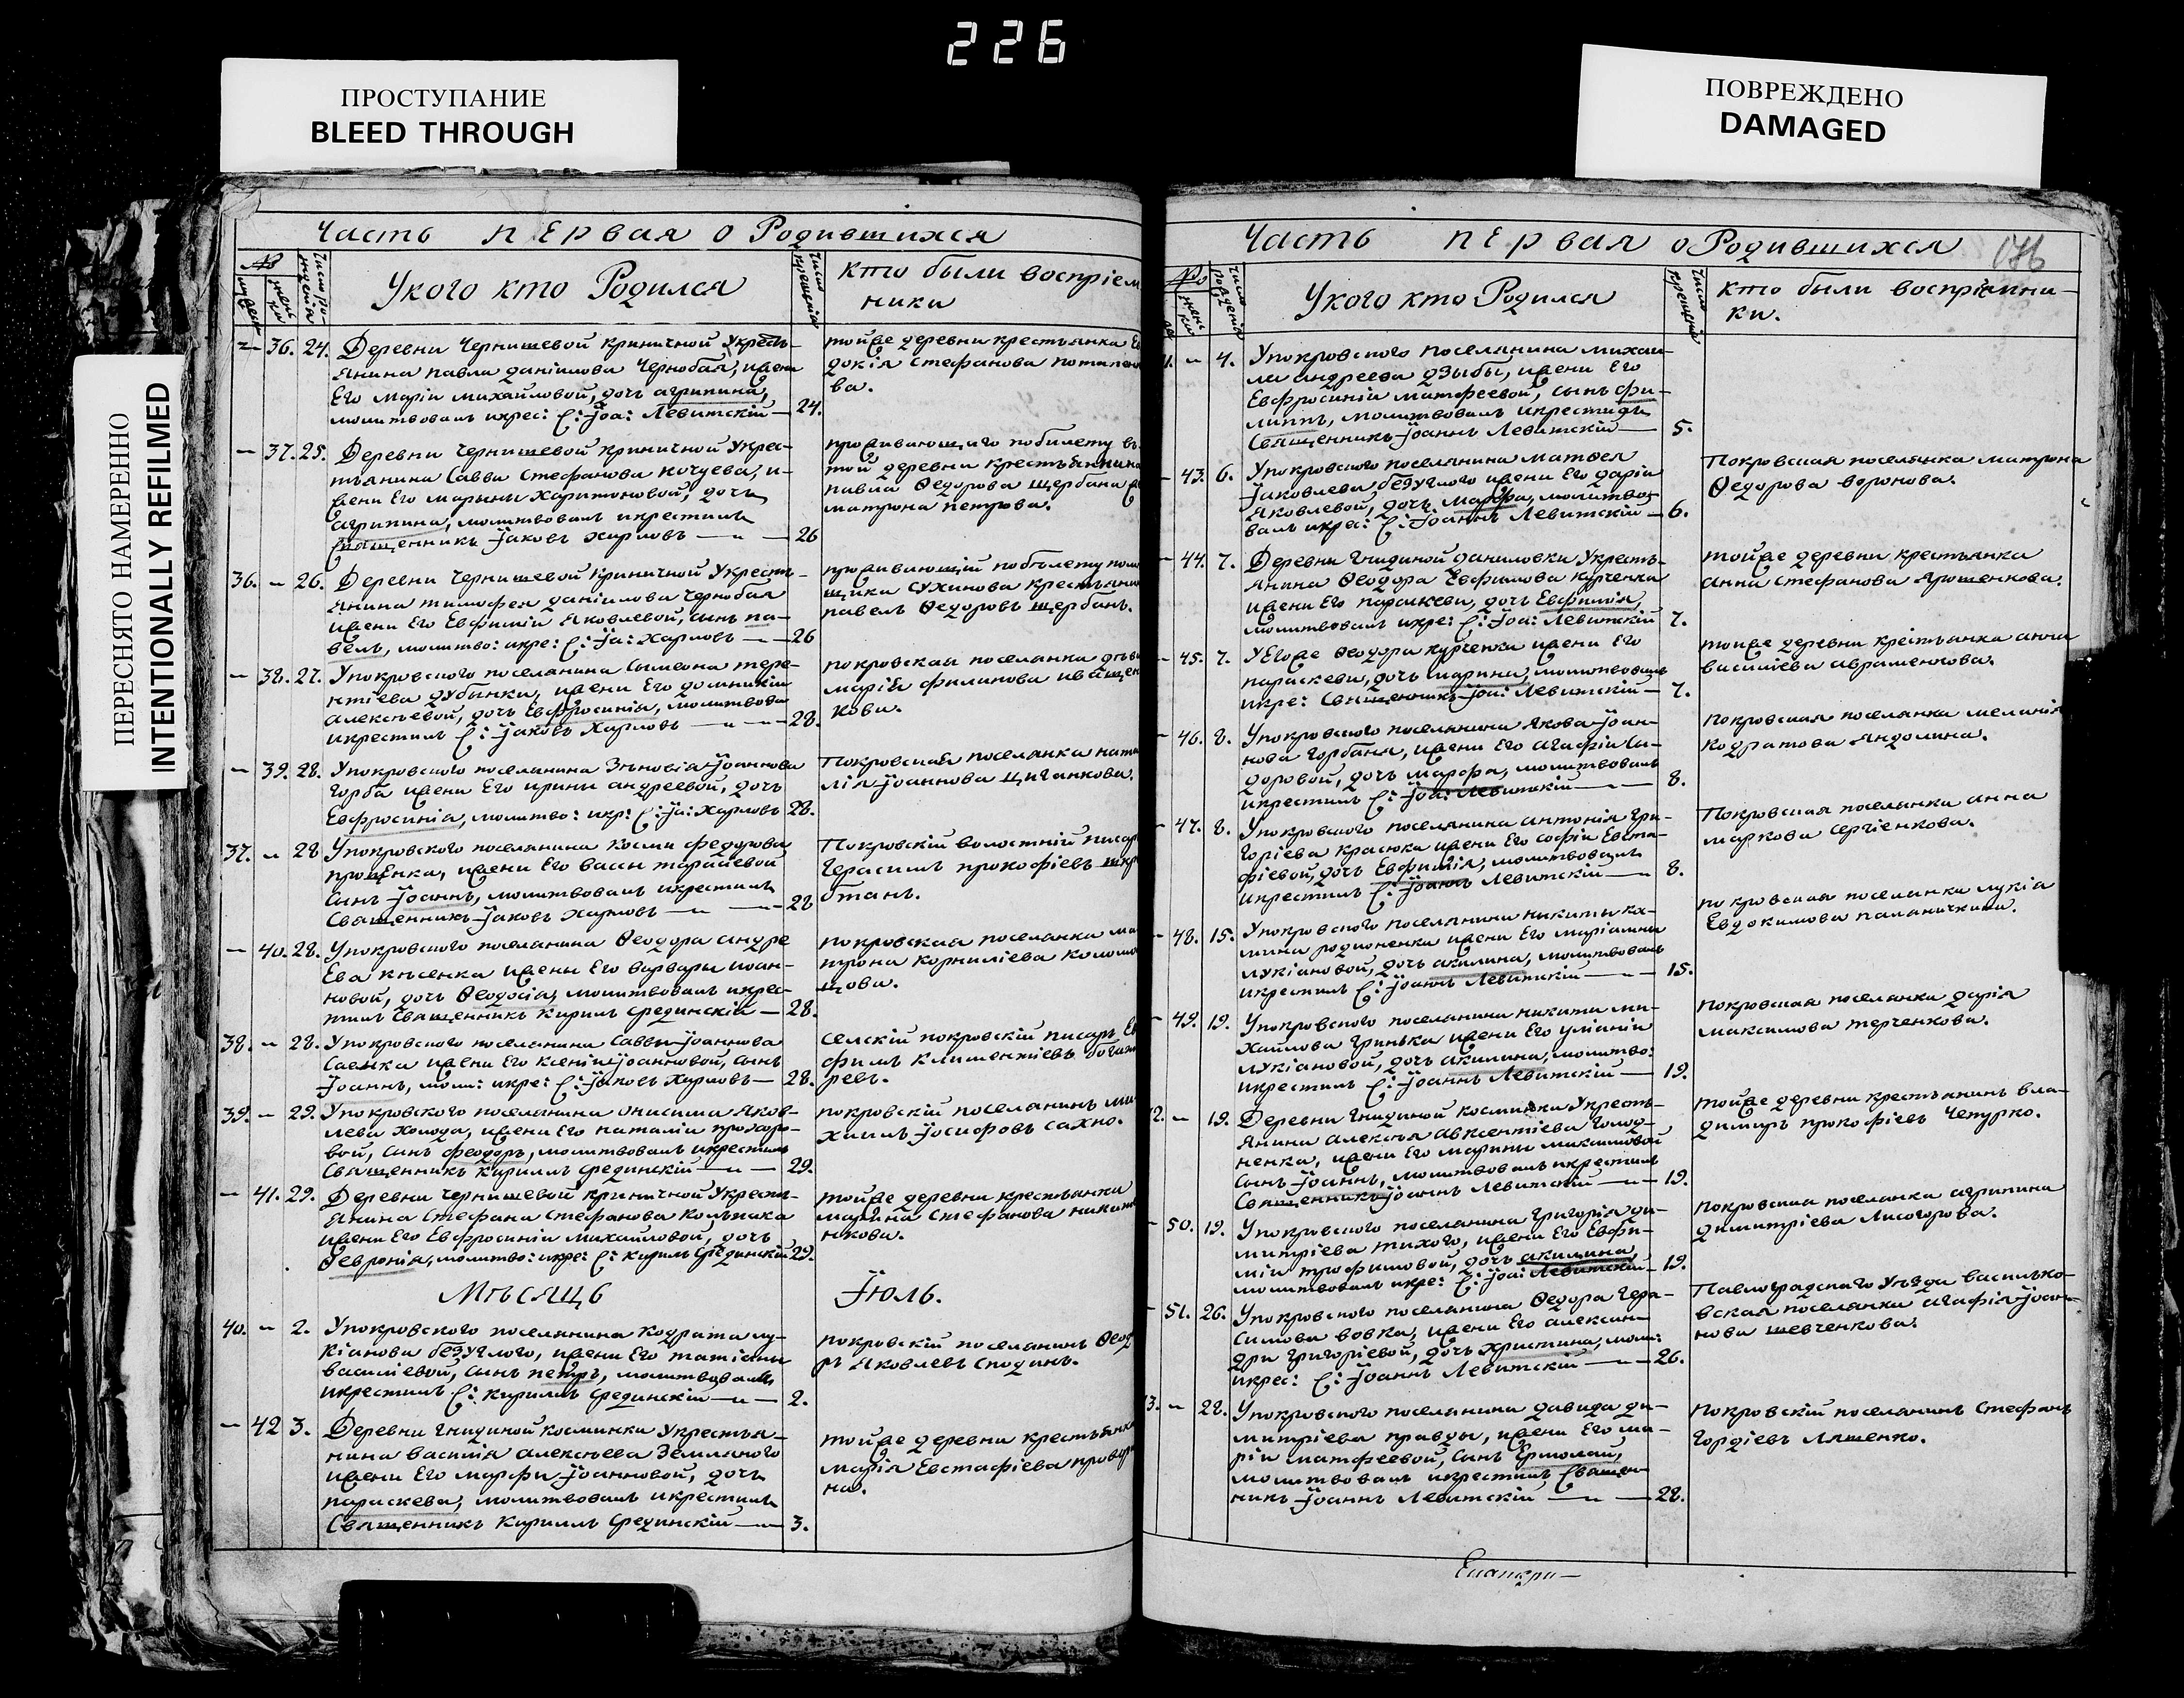 226
ПРОСТУПАНИЕ
BLEED THROUGH
ПОВРЕЖДЕНО
DAMAGED
ПЕРЕСНЯТО НАМЕРЕННО
INTENTIONALLY REFILMED
Часть первая о Родившихся
Укого кто Родился
кто были воспріем
ники
36. 24. Деревни Чернишевой криничной Укресть-
янина павла даніилова Чернобая, ижени
Его маріи михайловой, дочь агрипина,
молитвовалъ икрес: С: Іоа: Левитскій — 24.
тойже деревни крестьянка
докія стефанова
ва.
— 37. 25. Деревни Чернишевой криничной Укрес-
тьянина Савви Стефанова кочуева, и-
жени Его марыны Харитоновой, дочь
агрипина, молитвовалъ икрестилъ
Священникъ Іаковъ Харловъ — " — 26
проживающаго побилету въ
той деревни крестьянина
павла Ѳедорова щербана
матрона петрова.
36. — 26. Деревни Чернишевой криничной Укресть-
янина тимофея даніилова Чернобая
ижени Его Евфиміи Яковлевой, сынъ па-
велъ, молитво: икре: С: Іа: Харловъ — 26
проживающій побѣлету
щика Сухинова крестьянин
павелъ Ѳедоровъ щербанъ.
— 38. 27. Упокровского поселянина Сымеона тере-
нтіева дубынки, ижени Его домникіи
алексѣевой, дочь Евфросинія, молитвова
икрестилъ С: Іаковъ Харловъ — " — 28.
покровская поселянка дѣви
марія филипова иващен
кова.
— 39. 28. Упокровского поселянина Зѣновія Іоаннова
Горба ижени Его ирины андреевой, дочь
Евфросинія, молитво: икр: С: Іа: Харловъ 28.
Покровская поселянка ната
лія Іоаннова Циганкова.
37. — 28 Упокровского поселянина Космы федорова
процѣнка, ижени Его Вассы тарасіевой
Сынъ Іоаннъ, молитвовалъ икрестилъ
Священникъ Іаковъ Харловъ — " — 28
Покровскій волостній писар
Герасимъ прокофіевъ
бтанъ.
— 40. 28. Упокровского поселянина Ѳеодора андре
Ева кѣсенка ижены Его варвары иоан-
новой, дочь Ѳеодосія, молитвовалъ икрес-
тилъ Священникъ Кирилъ Срединскій — 28.
покровская поселянка ма
трона Корниліева Коломо
щова.
38. — 28. Упокровского поселянина Саввы Іоаннова
Саенка ижени Его Ксеніи Іоанновой, сынъ
Іоаннъ, моли: икре: С: Іаковъ Харловъ — 28.
Селскій покровскій писаръ Ев
фимъ Климентіевъ
ревъ.
39. — 29. Упокровского поселянина онисима Яков-
лева Холода, ижени Его наталіи прохоро-
вой, сынъ феодоръ, молитвовалъ икрестилъ
Священникъ Кириллъ Срединскій — " — 29.
покровскій поселянинъ ми
хаилъ Іосифовъ Сахно.
— 41. 29. Деревни Чернишевой криничной Укресть-
янина Стефана Стефанова Колѣпака
ижени Его Евфросиніи михайловой, дочь
Ѳевронія, молитво: икре: С: Кирилъ Срединскій 29.
тойже деревни крестьянка
марина Стефанова
нкова.
Мѣсяцъ Іюль.
40. — 2. Упокровского поселянина Кодрата лу-
кіанова безуглого, ижени Его татіаны
василіевой, сынъ петръ, молитвовалъ
икрестилъ С: Кириллъ Срединскій — " — 2.
покровскій поселянинъ Ѳеод
ръ Яковлевъ Сподинъ.
— 42 3. Деревни Гнидиной косминки Укрестья-
нина василія алексѣева Земляного
ижени Его марфы Іоанновой, дочь
параскева, молитвовалъ икрестилъ
Священникъ Кириллъ Срединскій — 3.
тойже деревни крестьянка
марія Евстафіева
на.
Часть первая о Родившихся
Укого кто Родился
кто были воспріемни-
ки.
1. — 4. Упокровского поселянина михаи-
ла андреева дзыбы, ижени Его
Евфросиніи матфеевой, сынъ фи-
липпъ, молитвовалъ икрестилъ
Священникъ Іоаннъ Левитскій — 5.
— 43. 6. Упокровского поселянина матвея
Іаковлева безуглого ижени Его дарія
Яковлевой, дочь марфа, молитво-
валъ икрес: С: Іоаннъ Левитскій — 6.
Покровская поселянка матрона
Ѳедорова воронова.
— 44. 7. Деревни Гнидиной даниловки Укресть-
янина Ѳеодора Евфимова курченка
ижени Его параскеви, дочь Евфимія
молитвовалъ икре: С: Іоа: Левитскій 7.
тойже деревни крестьянка
анна Стефанова Ярошенкова.
— 45. 7. УЕгоже Ѳеодора курченка ижени Его
параскеви, дочь марина, молитвовалъ
икре: Священникъ Іоа: Левитскій — 7.
тойже деревни крестьянка анна
василіева авраменкова.
— 46. 8. Упокровского поселянина Якова Іоан-
нова Горбаня, ижени Его агафіи Си-
доровой, дочь марфа, молитвовалъ
икрестилъ С: Іоа: Левитскій — 8.
Покровская поселянка меланія
Кодратова Яндолина.
— 47. 8. Упокровского поселянина антонія Гри-
горіева красюка ижени Его софіи Евста-
фіевой, дочь Евфимія, молитвовалъ
икрестилъ С: Іоаннъ Левитскій — 8.
Покровская поселянка анна
маркова Сергіенкова.
— 48. 15. Упокровского поселянина никиты ка-
лина родионенка ижени Его маріамны
лукіановой, дочь акилина, молитвовалъ
икрестилъ С: Іоаннъ Левитскій — " — 15.
покровская поселянка лукія
Евдокимова паланичкина.
— 49. 19. Упокровского поселянина никити ми-
хаилова гринька ижени Его уліаніи
лукіановой, дочь акилина, молитво:
икрестилъ С: Іоаннъ Левитскій — 19.
покровская поселянка дарія
максимова терченкова.
2. — 19. Деревни Гнидиной косминки Укресть-
янина алексѣя авксентіева Голод-
ненка, ижени Его марины максимовой
Сынъ Іоаннъ, молитвовалъ икрестилъ
Священникъ Іоаннъ Левитскій — " — 19.
тойже деревни крестьянинъ вла-
димиръ прокофіевъ Чепурко.
— 50. 19. Упокровского поселянина Григорія ди-
митріева тихого, ижени Его Евфи-
міи трофимовой, дочь акилина,
молитвовалъ икре: С: Іоа: Левитскій — 19.
покровская поселянка агрипина
димитріева Лисогорова.
— 51. 26. Упокровского поселянина Ѳедора Гера-
симова вовка, ижени Его алексан-
дри григоріевой, дочь христина, моли:
икрес: С: Іоаннъ Левитскій — " — 26.
Павлоградскаго Уѣзда василько-
вская поселянка агафія Іоан-
нова шевченкова.
3. — 28. Упокровского поселянина давида ди-
митріева правды, ижени Его ма-
ріи матфеевой, сынъ Ермолай,
молитвовалъ икрестилъ Священ-
никъ Іоаннъ Левитскій — " — 28.
покровскій поселянинъ Стефанъ
Гордіевъ Ляшенко.